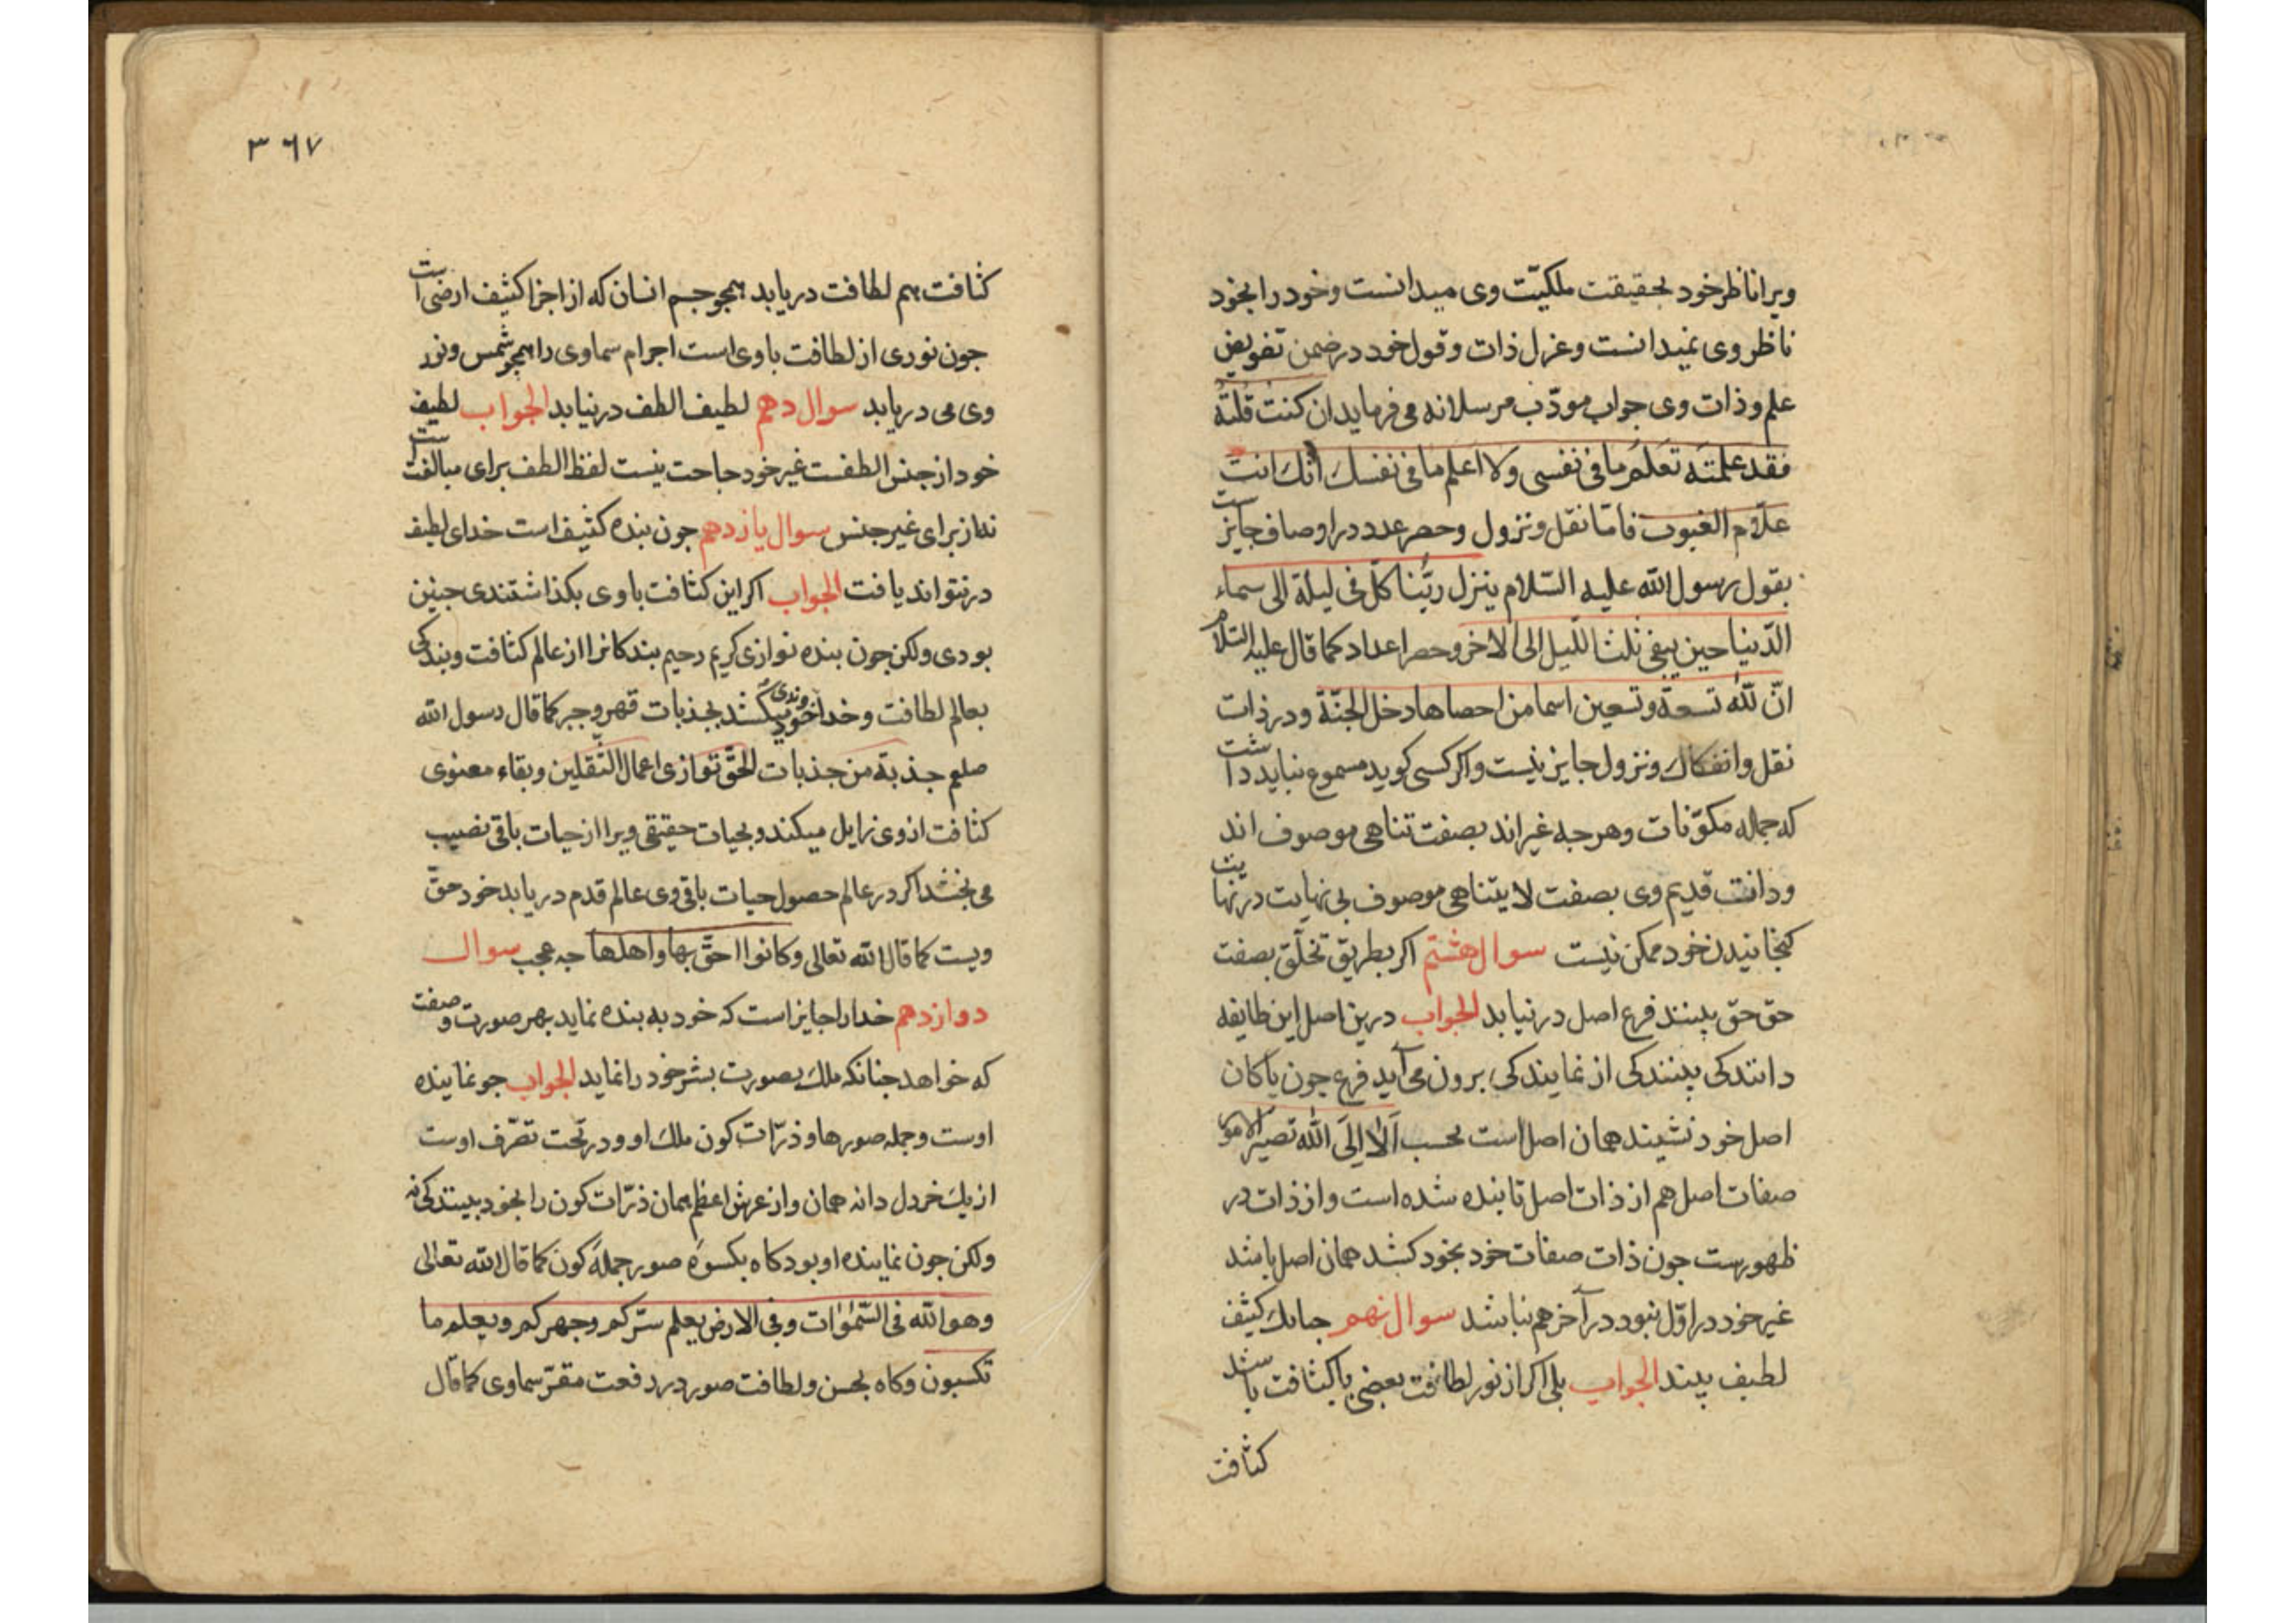 ویرا ناظر خود بحقیقت ملکیّت وی میدانست وخود را بخود
ناظر وی نمیدانست وعزل ذات وقول خود در ضمن تفویض
علم وذات وی جواب مودّب مرسلانه می فرماید ان کنت قلته
فقد علمته تعلم ما فی نفسی ولا اعلم ما فی نفسك انك انت
علّام الغیوب فامّا نقل ونزول وحصر عدد در اوصاف جایز ست
بقول رسول الله علیه السّلام ینزل ربّنا کلّ فی لیلة الی سماء
الدّنیا حین یبقی ثلث اللّیل الی الاخر وحصر اعداد کما قال علیه السّلام
انّ لله تسعة وتسعین اسما من احصاها دخل الجنّة ودر ذات
نقل وانفکاك ونزول جایز نیست واکر کسی کوید مسموع نباید داشت
که جمله مکوّنات وهرجه غیراند بصفت تناهی موصوف اند
وذات قدیم وی بصفت لا یتناهی موصوف بی نهایت در نهایت
کنجانیدن خود ممکن نیست سوال هشتم اکر بطریق تخلّق بصفت
حق حق بینند فرع اصل در نیابد الجواب درین اصل این طایفه
دانندکی بینندکی از نمایندکی برون می آید فرع جون باکان
اصل خود نشیند همان اصل است بحسب الا الی الله تصیر الامور
صفات اصل هم از ذات اصل تابنده شده است واز ذات در
ظهورست جون ذات صفات خود بخود کشد همان اصل باشد
غیر خود در اوّل نبود در آخر هم نباشد سوال نهم کثیف
لطیف بیند الجواب بلی اکر از نور لطافت بعضی با کثافت باشد
کثافت
٣٦٧
کثافت هم لطافت دریابد همجو جسم انسان که از اجزا کثیف ارضی است
جون نوری از لطافت باوی است اجرام سماوی را همجو شمس ونور
وی می دریابد سوال دهم لطیف الطف در نیابد الجواب لطیف
خود از جنس الطفست غیر خود حاجت نیست لفظ الطف برای مبالغت ست
نه از برای غیر جنس سوال یازدهم جون بنده کثیف است خدای لطیف
در نتواند یافت الجواب اکر این کثافت باوی بکذاشتندی جنین
بودی ولکن جون بنده نوازی کریم رحیم بندکانرا از عالم کثافت وبندکی
بعالم لطافت وخداوندی خود میکشد بجذبات قهر وجبر کما قال رسول الله
صلعم جذبة من جذبات الحقّ توازی اعمال الثّقلین وبقاء معنوی
کثافت از وی زایل میکند وبحیات حقیقی ویرا از حیات باقی نصیب
می بخشد اکر در عالم حصول حیات باقی وی عالم قدم دریابد خود حقّ
ویست کما قال الله تعالی وکانوا احقّ بها واهلها جه عجب سوال
دوازدهم خدا را جایز است که خود به بنده نماید بهر صورت وصفت
که خواهد جنانکه ملك بصورت بشر خود را نماید الجواب جو نماینده
اوست وجمله صورها وذرّات کون ملك او ودر تحت تصرّف اوست
از یك خردل دانه همان واز عرش اعظم همان ذرّات کون را بخود بینندکی نه
ولکن جون نماینده او بود کاه بکسوه صور جمله کون کما قال الله تعالی
وهو الله فی السّموات وفی الارض یعلم سرّکم وجهرکم ویعلم ما
تکسبون وکاه بحسن ولطافت صور در رفعت مقرّ سماوی کما قال